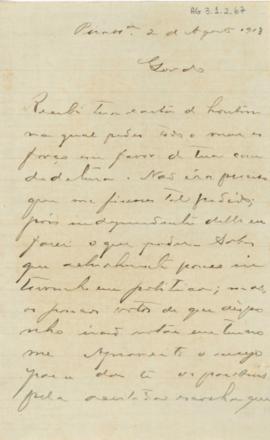 AG 3.1.2.67
Pirass.ª 2 de Agosto 1918
Gordo
Recebi tua carta d'hontem
na qual pedes todo o meu es
forço em favor de tua can
didatura. Não era preciso
que me fizesses tal pedido;
pois independente delle eu
farei o que poder. Sabes
que actualmente pouco in
em politica; mas,
os poucos votos de que dispo
nho irão votar em teu no
me. Aproveito o ensejo
para dar-te os parabens
pela marcha que